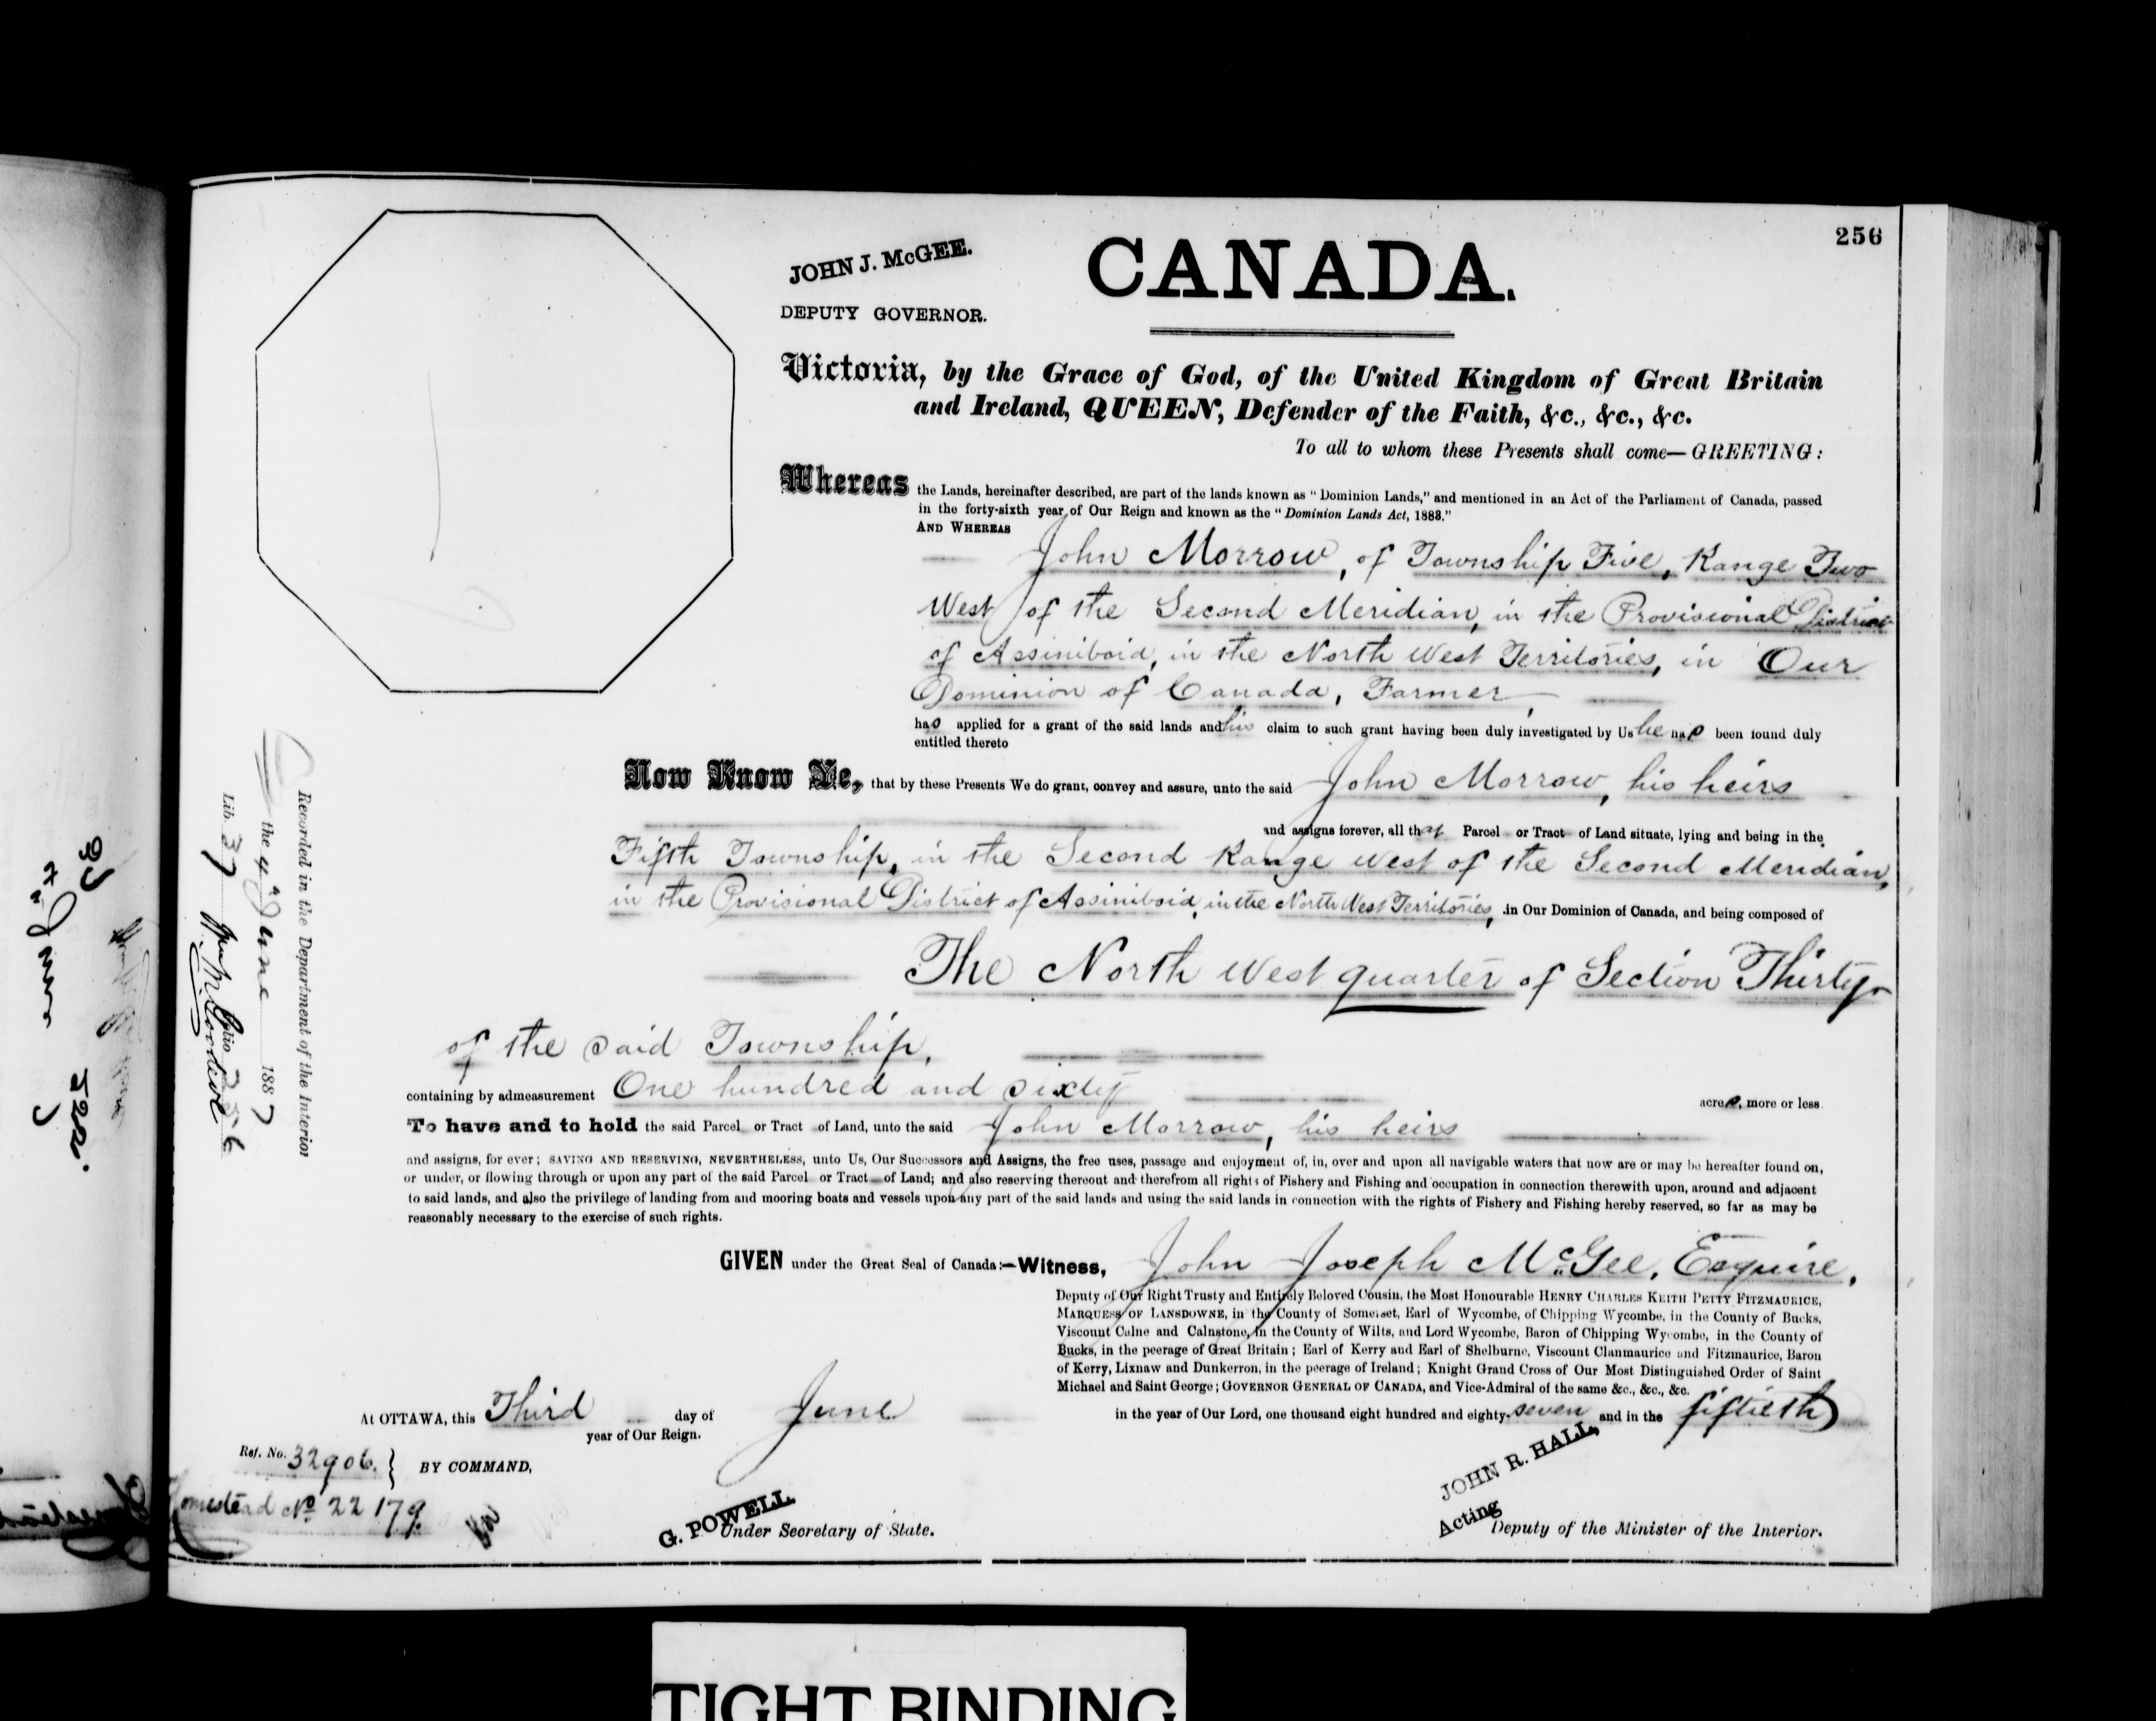 256
JOHN J. McGEE.
DEPUTY GOVERNOR.
CANADA.
Victoria, by the Grace of God, of the United Kingdom of Great Britain
and Ireland, QUEEN, Defender of the Faith, &c., &c., &c.
To all to whom these Presents shall come—GREETING:
Whereas the Lands, hereinafter described, are part of the lands known as "Dominion Lands," and mentioned in an Act of the Parliament of Canada, passed
in the forty-sixth year of Our Reign and known as the "Dominion Lands Act, 1883."
AND WHEREAS
John Morrow, of Township Five, Range Two
West of the Second Meridian, in the Provisional District
of Assiniboia, in the North West Territories, in Our
Dominion of Canada, Farmer,
has applied for a grant of the said lands and his claim to such grant having been duly investigated by Us he has been found duly
entitled thereto
Now Know Ye, that by these Presents We do grant, convey and assure, unto the said John Morrow, his heirs
and assigns forever, all that Parcel or Tract of Land situate, lying and being in the
Fifth Township, in the Second Range West of the Second Meridian,
in the Provisional District of Assiniboia, in the North West Territories, in Our Dominion of Canada, and being composed of
The North West quarter of Section Thirty
of the said Township,
containing by admeasurement One hundred and sixty acres, more or less
To have and to hold the said Parcel or Tract of Land, unto the said John Morrow, his heirs
and assigns, for ever; SAVING AND RESERVING, NEVERTHELESS, unto Us, Our Successors and Assigns, the free uses, passage and enjoyment of, in, over and upon all navigable waters that now are or may be hereafter found on,
or under, or flowing through or upon any part of the said Parcel or Tract of Land; and also reserving thereout and therefrom all rights of Fishery and Fishing and occupation in connection therewith upon, around and adjacent
to said lands, and also the privilege of landing from and mooring boats and vessels upon any part of the said lands and using the said lands in connection with the rights of Fishery and Fishing hereby reserved, so far as may be
reasonably necessary to the exercise of such rights.
GIVEN under the Great Seal of Canada:—Witness, John Joseph McGee, Esquire,
Deputy of Our Right Trusty and Entirely Beloved Cousin, the Most Honourable HENRY CHARLES KEITH PETTY FITZMAURICE,
MARQUESS OF LANSDOWNE, in the County of Somerset, Earl of Wycombe, of Chipping Wycombe, in the County of Bucks,
Viscount Calne and Calnstone, in the County of Wilts, and Lord Wycombe, Baron of Chipping Wycombe, in the County of
Bucks, in the peerage of Great Britain; Earl of Kerry and Earl of Shelburne, Viscount Clanmaurice and Fitzmaurice, Baron
of Kerry, Lixnaw and Dunkerron, in the peerage of Ireland; Knight Grand Cross of Our Most Distinguished Order of Saint
Michael and Saint George; GOVERNOR GENERAL OF CANADA, and Vice-Admiral of the same &c., &c., &c.
At OTTAWA, this Third day of June in the year of Our Lord, one thousand eight hundred and eighty-seven and in the fiftieth
year of Our Reign.
Ref. No. 32906. } BY COMMAND,
Homestead No 22179.
G. POWELL
Under Secretary of State.
JOHN R. HALL,
Acting
Deputy of the Minister of the Interior.
Recorded in the Department of the Interior
the 4th June 1887
Lib. 37 Folio 256
TIGHT BINDING